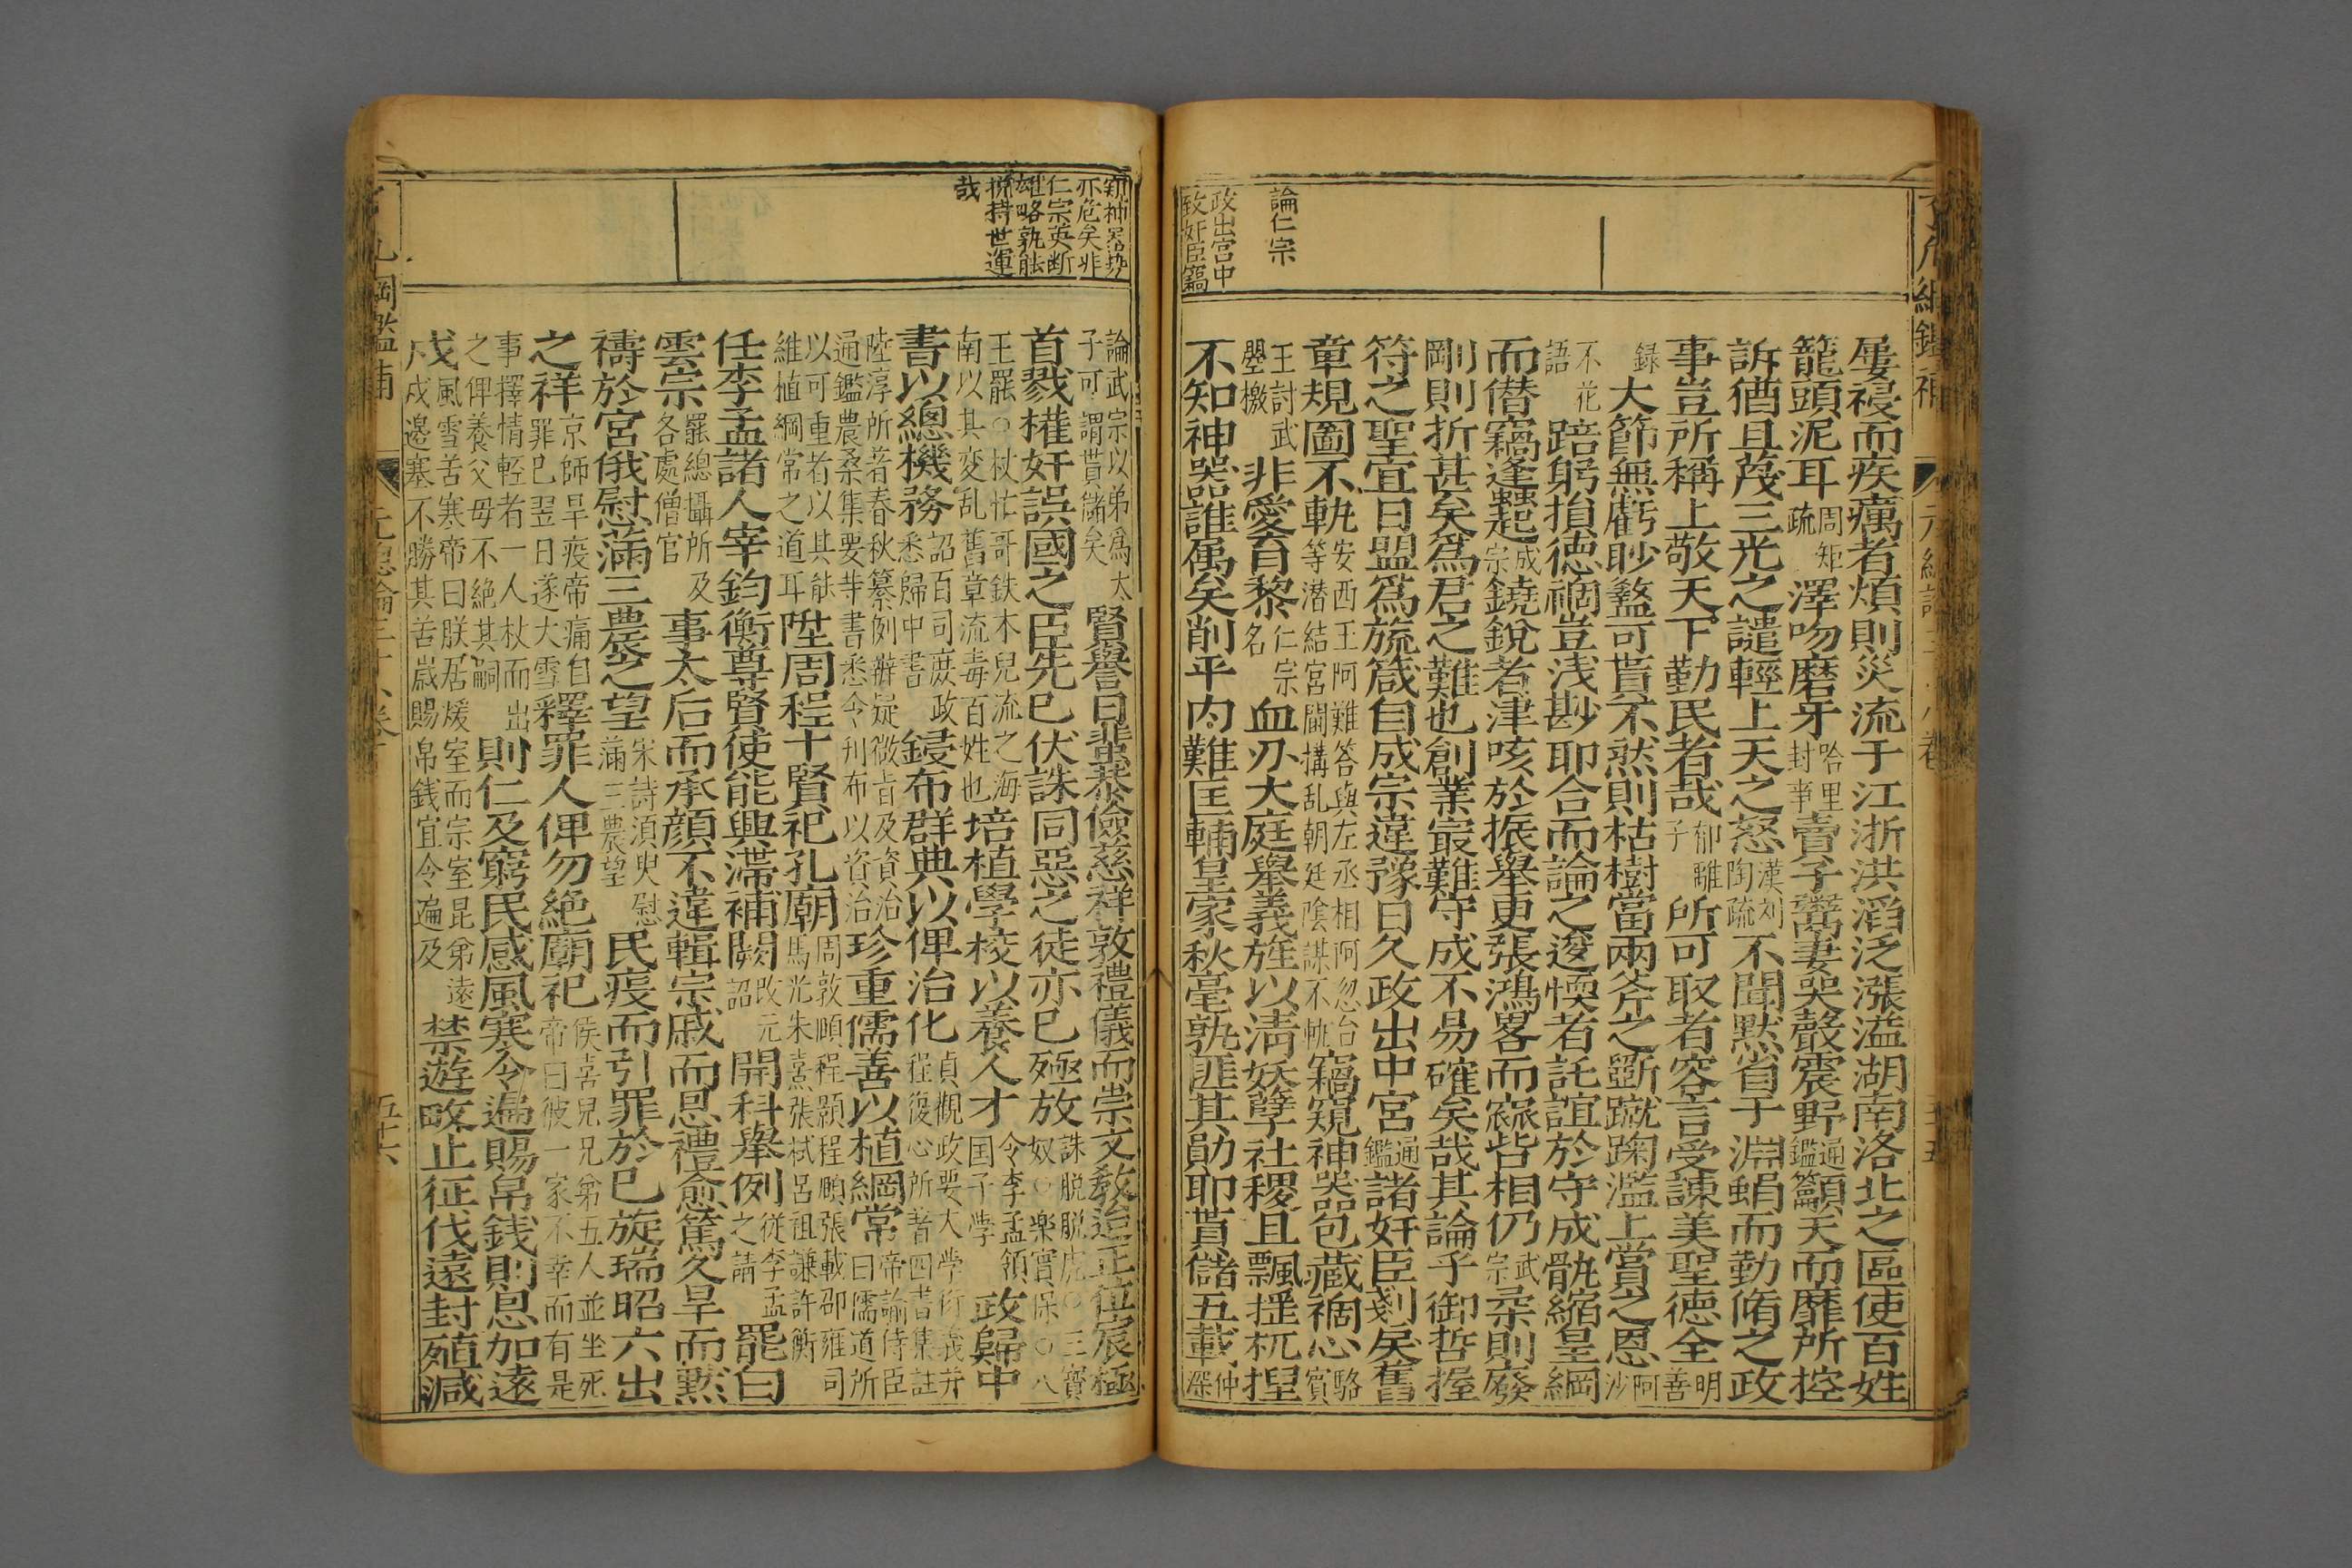 論仁宗
政出宮中
致奸臣竊
屢祲而疾癘者煩則災流于江浙洪滔泛漲溢湖南洛北之區使百姓
籠頭泥耳周矩疏澤吻磨牙哈里封事賣子鬻妻哭聲震野通鑑籲天而靡所控
訴猶且蔑三光之譴輕上天之怒漢刘陶疏不聞默省于淵蜎而勤脩之政
事豈所稱上敬天下勤民者哉郁離子所可取者容言受諫美聖德全明善
録大節無虧眇盭可貰不然則枯樹當兩斧之斲蹴踘濫上賞之恩阿沙
不花語踣躬損德禍豈浅尠耶合而論之逡愞者託誼於守成骫縮皇綱
而僭竊逢起成宗鐃銳者津咳於振舉更張鴻畧而寇皆相仍武宗柔則廢
剛則折甚矣爲君之難也創業㝡難守成不易確矣哉其論乎御哲握
符之聖宜日盟爲旒箴自成宗違豫日久政出中宮通鑑諸奸臣剗矣舊
章規圖不軌安西王阿難答與左丞相阿忽台等潜結宮闈搆乱朝廷陰謀不軌竊窺神器包藏禍心駱賓
王討武曌檄非愛育黎仁宗名血刃大庭舉義旌以清妖孽社稷且飄揺杌揑
不知神器誰属矣削平内難匡輔皇家秋毫孰匪其勛耶貰儲五載仲深
亦危矣非
仁宗英断
雄略孰能
挽持世運
哉
論武宗以弟爲太子可謂貰儲矣賢譽曰蜚恭儉慈祥敦禮儀而崇文教迨正位宸極
首戮權奸誤國之臣先已伏誅同惡之徒亦已殛放誅脱脱虎○三寳奴○楽實保○八
王罷○杖忙哥鉄木兒流之海南以其変乱舊章流毒百姓也培植學校以養人才令李孟領国子学政歸中
書以總機務詔百司庶政悉歸中書鋟布群典以俾治化貞觀政要大学衍義并程復心所著四書集註
陸淳所著春秋纂例辨疑微旨及資治通鑑農桑集要等書悉令刋布以資治珍重儒善以植綱常帝諭侍臣曰儒道所
以可重者以其能維植綱常之道耳陞周程十賢祀孔廟周敦頤程顥程頤張載邵雍司馬光朱熹張栻呂祖謙許衡
任李孟諸人宰鈞衡尊賢使能興滞補闕改元詔開科舉例従李孟之請罷白
雲宗罷總攝所及各處僧官事太后而承顔不違輯宗戚而恩禮愈篤久旱而黙
禱於宮俄慰滿三農之望宋詩須臾慰滿三農望民疫而引罪於已旋瑞昭六出
之祥京師旱疫帝痛自罪已翌日遂大雪釋罪人俾勿絶廟祀侯喜兒兄弟五人並坐死帝曰彼一家不幸而有是
事擇情輕者一人杖而出之俾養父母不絶其嗣則仁及窮民感風寒令遍賜帛銭則恩加遠
戍風雪苦寒帝曰朕居煖室而宗室昆弟遠戍邊塞不勝其苦嵗賜帛銭宜令遍及禁遊畋止征伐遠封殖減
五十六